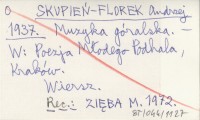 O SKUPIEŃ-FLOREK Andrzej
1937. Muzyka góralska. -
W: Poezja Młodego Podhala,
Kraków.
Wiersz.
Rec.: ZIĘBA M. 1972.
BT/0641/1127